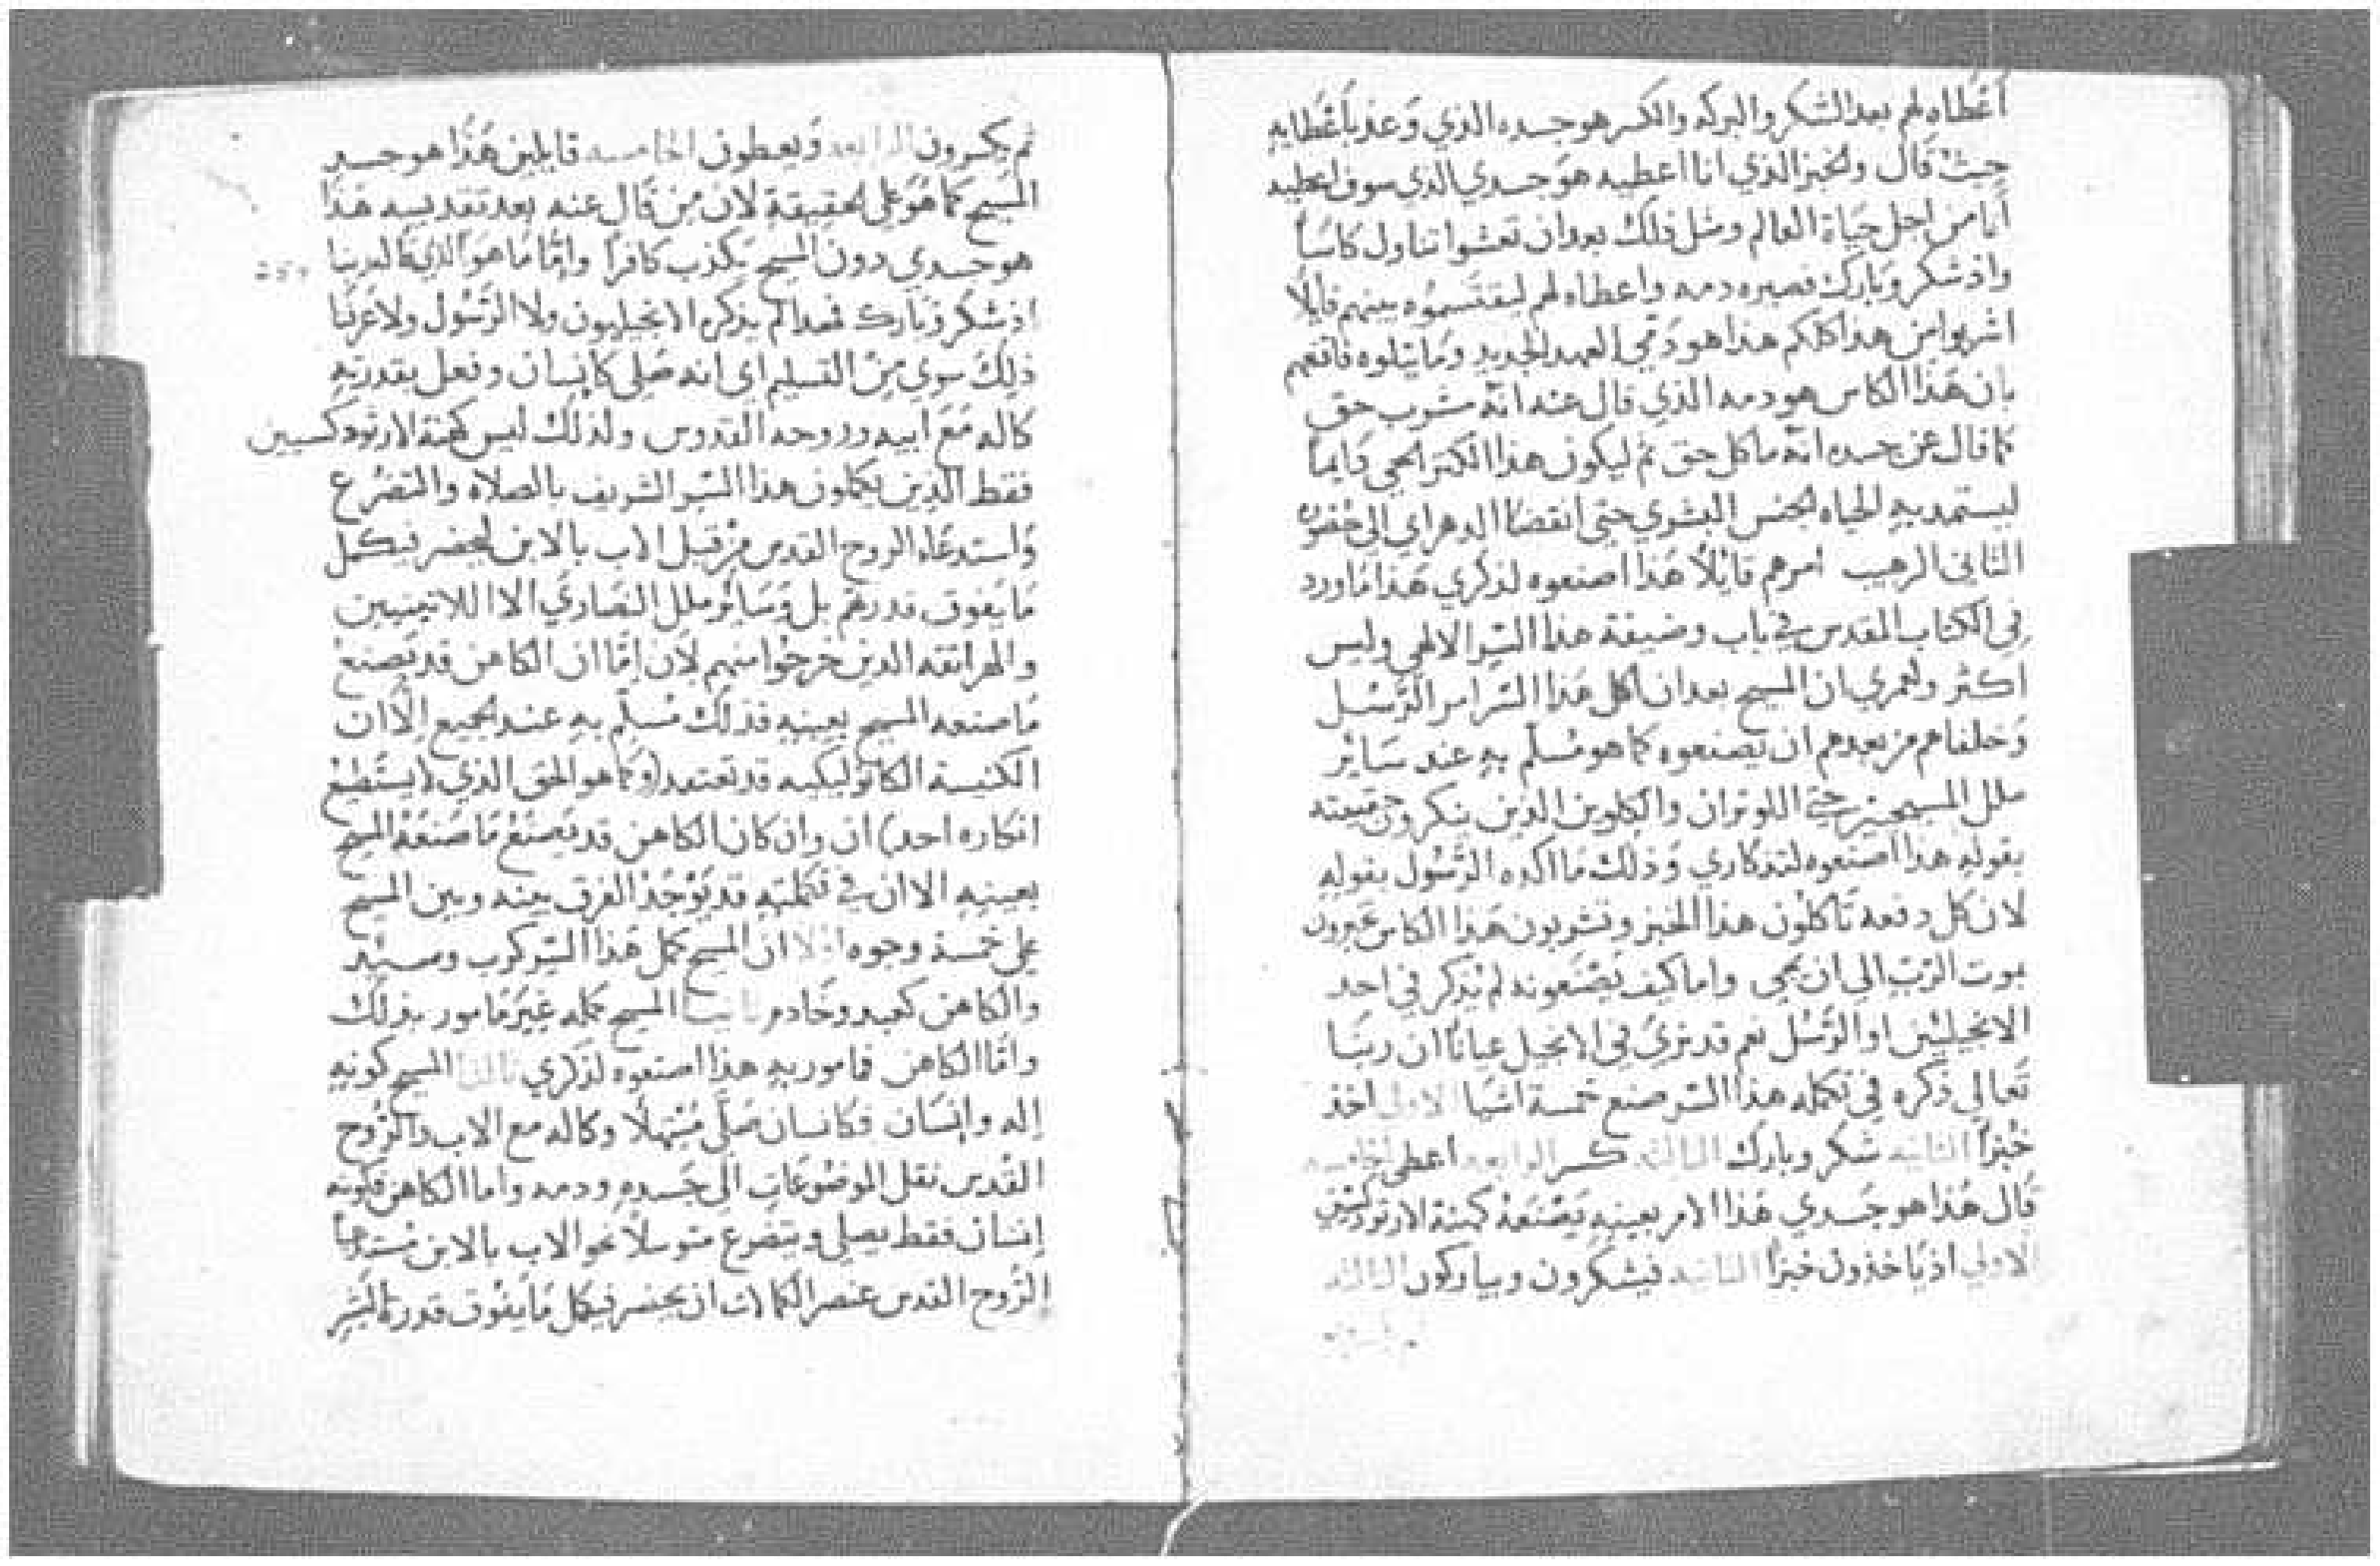 أعْطاه لهم بعد الشكر والبركه والكسر هو جسده الذي وَعد بأعْطايهِ
حيث قال والخبز الذي انا اعطيه هوَ جسدي الذي سوف اعطيه
أنا من اجل حَياة العالم ومثل ذلك بعد ان تعشوا تناول كاسَاً
واذ شكر وَبارك فصيره دمه واعطاه لهم ليقتسموُه بينهم قايلاً
اشربوا من هذا كلكم هذا هو دَمي العهد الجديد ومَا يتلوه فافهم
بان هَذا الكاس هو دمه الذي قال عنه انهُ مشروب حق
كما قال عن جسده انهُ ماكل حق ثم ليكون هذا الكنز المحيي دَايماً
ليستمد بهِ الحياه الجنس البشري حتى انقضا الدهر اي الى حضوره
الثاني الرهيب امرهم قايْلاً هَذا اصنعوه لذكري هَذا مَا ورد
في الكتاب المقدس في باب وضيفة هذا السِر الالهي وليس
اكثر ولعمري ان المسيح بعد ان اكمل هَذا السّر امر الرّسُل
وَخلفاهم من بعدهم ان يَصنعوه كما هو مُسلّم بهِ عند سَايْر
ملل المسيحيين حتى اللوتران والكلوين الذين ينكرون حقيقته
بقولهِ هذا اصنعوه لتذكاري وَذلك مَا اكده الرَّسُول بقولهِ
لان كل دفعه تاكلوُن هذا الخبز وتشربون هَذا الكاس تخبرون
بموت الرّبّ الى ان يجي واما كيف يَصْنَعونه لم يُذكر في احد
الانجيليّين او الرّسُل نعم قد نرىَ في الانجيل عياناً ان ربنا
تَعالي ذكره في تكمله هذا السّر صنع خمسة اشيا الاولي اخذ
خُبزاً الثانيه شكر وبارك الثالثه كسر الرابعه اعطى الخامسه
قَال هَذا هو جَسدي هَذا الامر بعينهِ يَصْنعَهُ كهنة الارتودكسيّين
الاولي اذ يَاخذون خبزاً الثانيه فيشكرون ويباركون الثالثه
ثم يكسرون الرابعه وَيعطون الخامسه قايلين هَذا هو جسد
المسيح كما هوَ علي الحقيقةِ لان مِن قَال عنه بعد تقديسه هَذا
هو جسدي دون المسيح يَكذب كافراً وامَّا مَا هوَ الذي قاله ربنا
اذ شكر وَبارك فهذا لم يذكره الانجيليون ولا الرَّسُول ولا عَرفنَا
ذلِكَ سوي مِن التسليم اي انه صَلي كانسان وفعل بقدرتهِ
كاله مَعَ ابيه وروحه القدوس ولذلك ليس كهنة الارتودكسيين
فقط الذين يكملون هذا السّر الشريف بالصلاه والتضرُع
وَاستدعَاء الروح القدس مِن قبل الاب بالابن ليحضر فيكمل
مَا يَفوق قدرتهم بل وَسَايْر ملل النصَاري الا اللاتينيين
والهراتقه الذين خرجُوا منهم لاَن امَّا ان الكاهن قد يَصنعُ
مَا صنعه المسيح بعينهِ فذلك مُسلّم بهِ عند الجميع الّا ان
الكنيسة الكاتوليكيه قد تعتقد (وَكما هو الحق الذي لا يستَطيعُ
انكاره احد) ان وان كان الكاهن قد يَصنَعُ مَا صَنعَهُ المسيح
بعينهِ الا ان في تكملتهِ قد يَوُجَدُ الفرق بينه وبين المسيح
علي خمسة وجوه اولا ان المسيح كمل هَذا السّر كرب وسيّد
والكاهن كعبد وخَادم ثانيا المسيح كمله غيَر مَامور بذلك
وامَّا الكاهن فمامور بهِ هذا اصنعوه لذكري ثالثا المسيح كونهِ
إله وانسَان فكانسان صَلّي مُبْتهلاً وكاله مع الاب والرُّوح
القدُس نقل الموضُوعَات الَى جَسدهِ ودمه واما الكاهن فكونه
إنسان فقط يصلي ويتضرع متوسلاً نحو الاب بالابن مُستدعياً
الرُّوح القدس عنصر الكمالات ان يحضر فيكمل مَا يفوُق قدرة البَشر